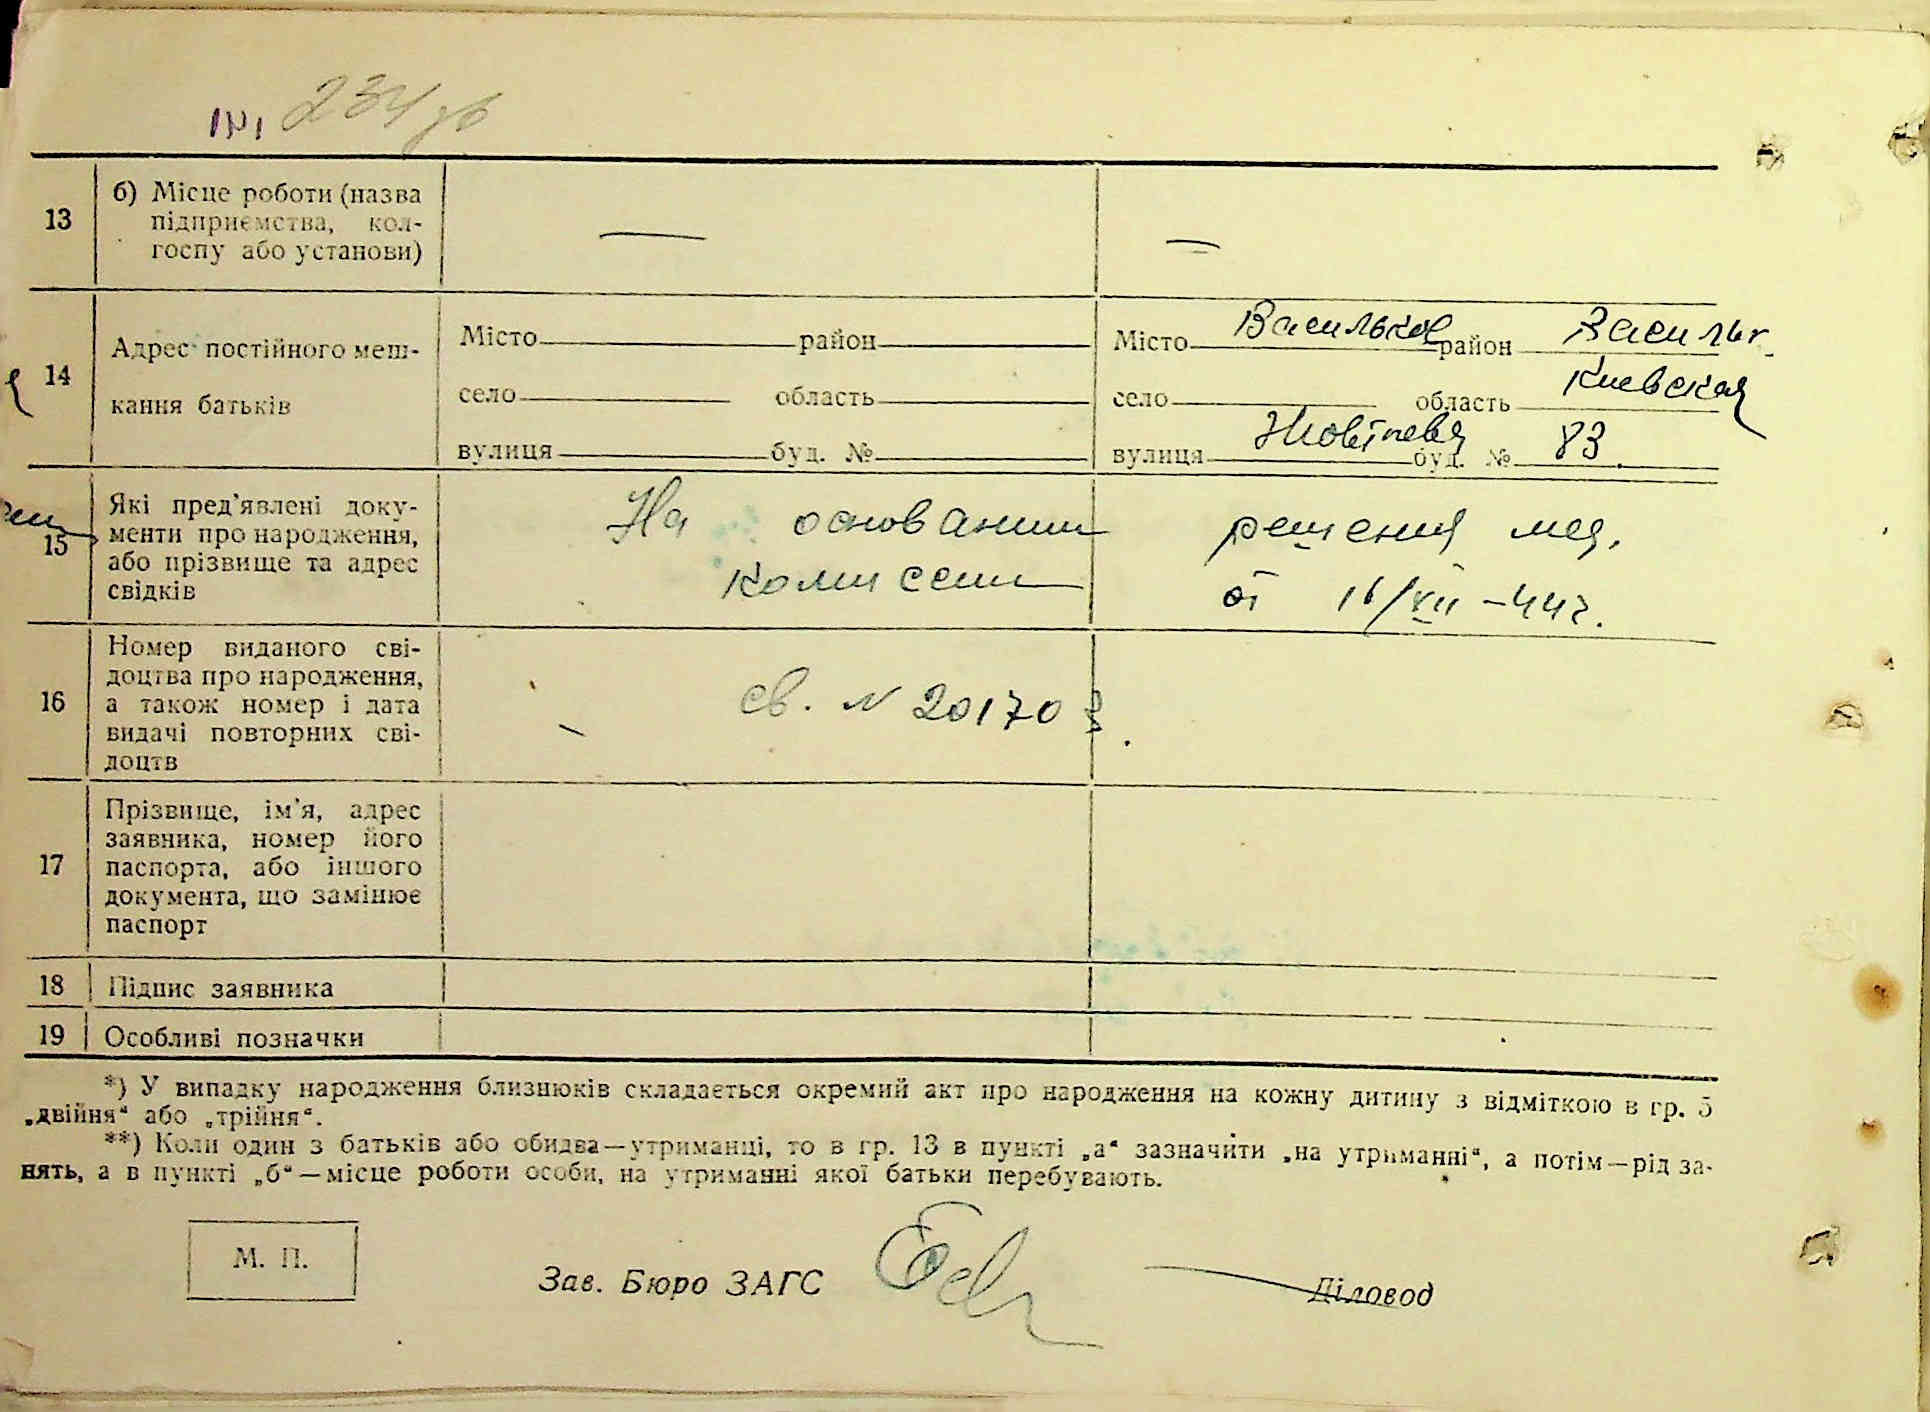 234
13
б) Місце роботи (назва
підприємства, кол-
госпу або установи)
—
—
14
Адрес постійного меш-
кання батьків
Місто район
село область
вулиця буд. №
Місто Васильков район Васильк.
село область Киевская
вулиця Жовтнева буд. № 83
15
Які пред'явлені доку-
менти про народження,
або прізвище та адрес
свідків
На основании решения мед.
комиссии от 16/VII-44г.
16
Номер виданого сві-
доцтва про народження,
а також номер і дата
видачі повторних сві-
доцтв
св. N 20170
17
Прізвище, ім'я, адрес
заявника, номер його
паспорта, або іншого
документа, що замінює
паспорт
18 Підпис заявника
19 Особливі позначки
*) У випадку народження близнюків складається окремий акт про народження на кожну дитину з відміткою в гр. 5
„двійня“ або „трійня“.
**) Коли один з батьків або обидва—утриманці, то в гр. 13 в пункті „а“ зазначити „на утриманні“, а потім—рід за-
нять, а в пункті „б“—місце роботи особи, на утриманні якої батьки перебувають.
М. П.
Зав. Бюро ЗАГС
Діловод